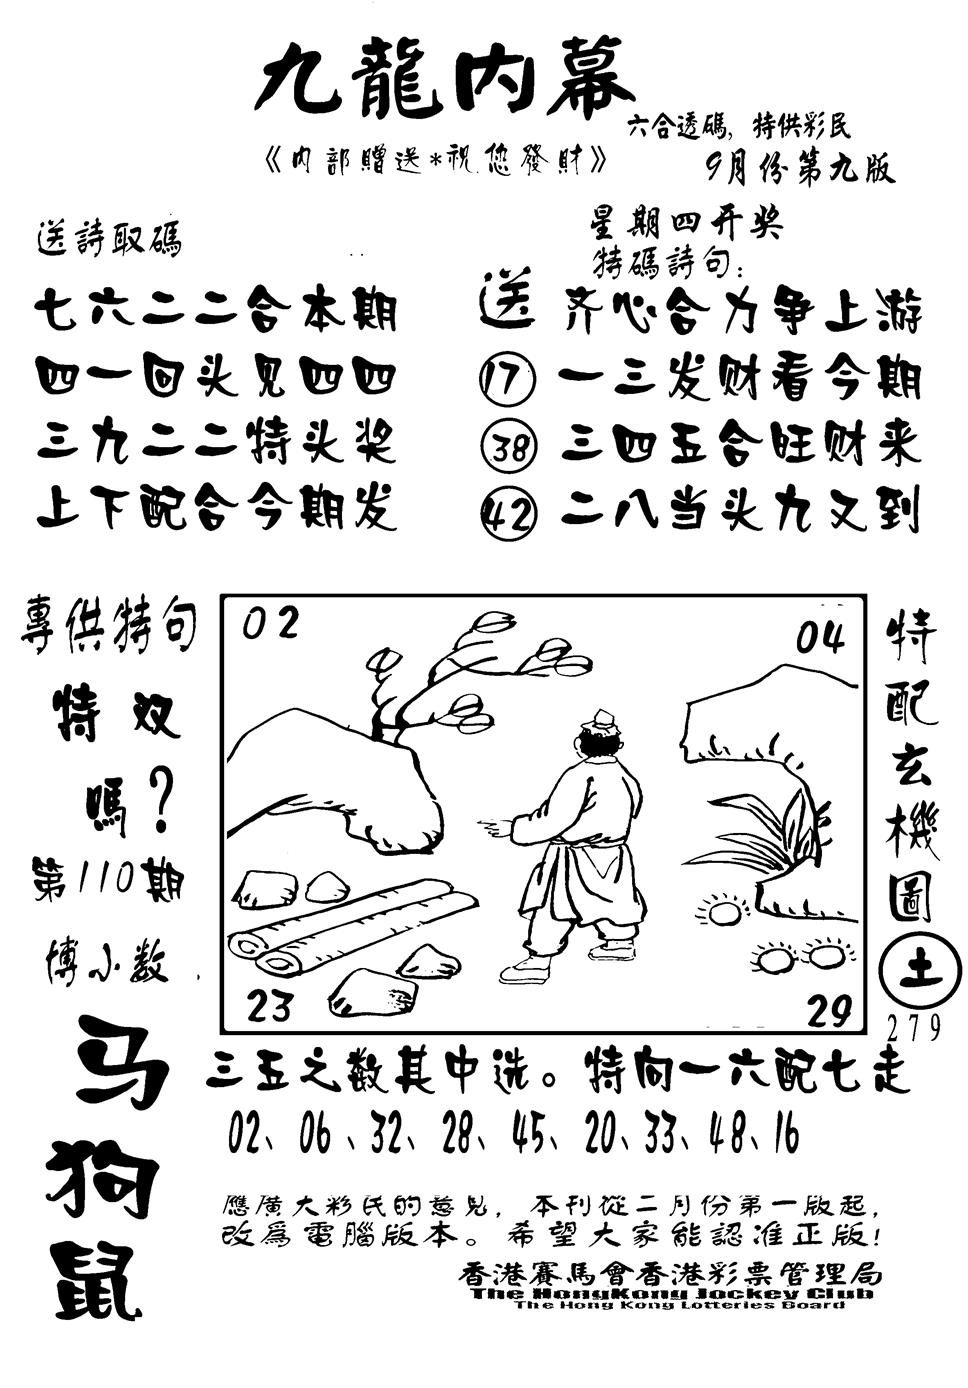 九龍內幕
六合透碼，特供彩民
《内部贈送*祝您發財》
9月份第九版
送詩取碼
七六二二合本期
四一回头见四四
三九二二特头奖
上下配合今期发
星期四开奖
特碼詩句：
送 齐心合力争上游
17 一三发财看今期
38 三四五合旺财来
42 二八当头九又到
專供特句
特双
嗎？
第110期
博小数
马
狗
鼠
02
04
23
29
特配玄機圖
土
279
三五之数其中选。特向一六配七走
02、06、32、28、45、20、33、48、16
應廣大彩民的意見，本刊從二月份第一版起，
改爲電腦版本。希望大家能認准正版！
香港賽馬會香港彩票管理局
The HongKong Jockey Club
The Hong Kong Lotteries Board